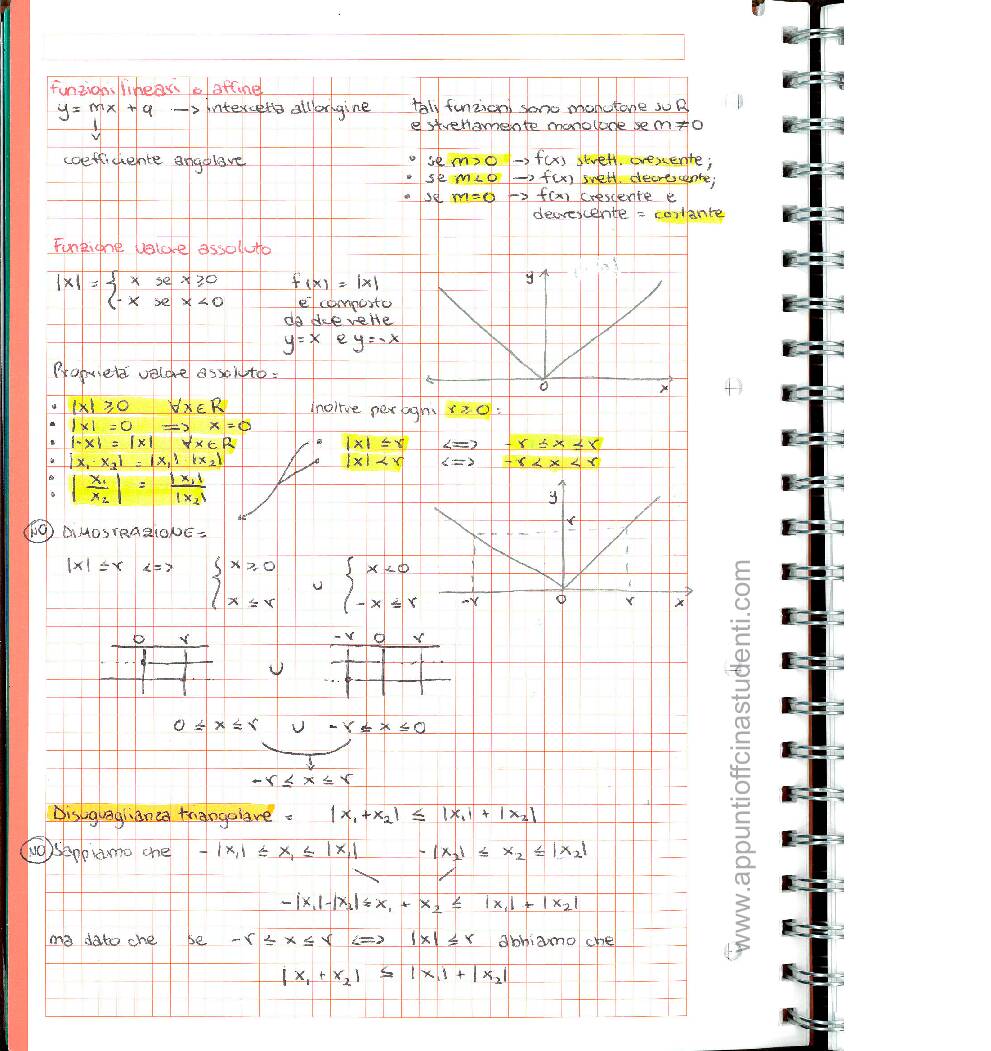 Funzioni lineari o affine
y = mx + q → intercetta all'origine
↓
coefficiente angolare
tali funzioni sono monotone su R
e strettamente monotone se m ≠ 0
• se m>0 → f(x) strett. crescente;
• se m<0 → f(x) strett. decrescente;
• se m=0 → f(x) crescente e
decrescente = costante
Funzione valore assoluto
|x| = { x se x ≥ 0
-x se x < 0
f(x) = |x|
è composto
da due rette
y = x e y = -x
y
0
x
Proprietà valore assoluto:
• |x| ≥ 0 ∀x∈R
• |x| = 0 => x = 0
• |-x| = |x| ∀x∈R
• |x₁ · x₂| = |x₁| · |x₂|
• |x₁/x₂| = |x₁|/|x₂|
Inoltre per ogni r ≥ 0:
• |x| ≤ r <=> -r ≤ x ≤ r
• |x| < r <=> -r < x < r
y
r
-r 0 r x
NO DIMOSTRAZIONE =
|x| ≤ r <=> { x ≥ 0 ∪ { x < 0
x ≤ r -x ≤ r
0 r ∪ -r 0 r
0 ≤ x ≤ r ∪ -r ≤ x ≤ 0
↓
-r ≤ x ≤ r
Disuguaglianza triangolare = |x₁+x₂| ≤ |x₁| + |x₂|
NO Sappiamo che -|x₁| ≤ x₁ ≤ |x₁| -|x₂| ≤ x₂ ≤ |x₂|
-|x₁|-|x₂| ≤ x₁ + x₂ ≤ |x₁| + |x₂|
ma dato che se -r ≤ x ≤ r <=> |x| ≤ r abbiamo che
|x₁ + x₂| ≤ |x₁| + |x₂|
www.appuntioffcinastudenti.com